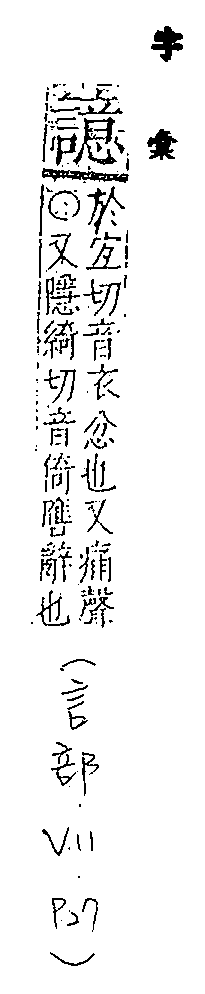 字彙
譩
於宜切音衣忿也又痛聲
○又隱綺切音倚譍辭也
(言部.V.11.P.27)